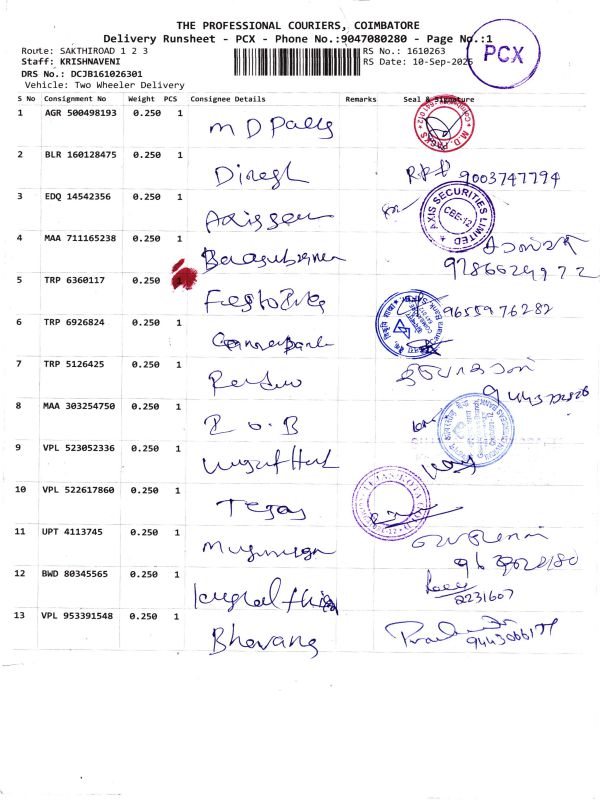 THE PROFESSIONAL COURIERS, COIMBATORE
Delivery Runsheet - PCX - Phone No.:9047080280 - Page No.:1
Route: SAKTHIROAD 1 2 3
RS No.: 1610263
PCX
Staff: KRISHNAVENI
RS Date: 10-Sep-2025
DRS No.: DCJB161026301
Vehicle: Two Wheeler Delivery
S No Consignment No Weight PCS Consignee Details Remarks Seal & Signature
1 AGR 500498193 0.250 1 M D Packs
2 BLR 160128475 0.250 1 Dinesh 9003747794
3 EDQ 14542356 0.250 1 AXIS SECURITIES LIMITED CBE-12
4 MAA 711165238 0.250 1 Balasubramani
5 TRP 6360117 0.250 1 9655976282
6 TRP 6926824 0.250 1 Canara Bank
7 TRP 5126425 0.250 1
8 MAA 303254750 0.250 1 I O B
9 VPL 523052336 0.250 1
10 VPL 522617860 0.250 1 Tejas
11 UPT 4113745 0.250 1 Murugan
12 BWD 80345565 0.250 1 2231607
13 VPL 953391548 0.250 1 Bhavang